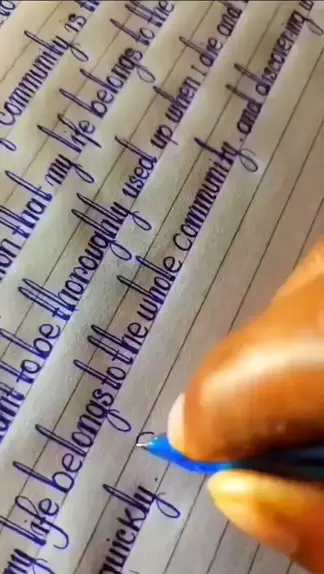 Community is
that my life belongs to the
to be thoroughly used up when i die and
my life belongs to the whole Community, and discovering
quickly